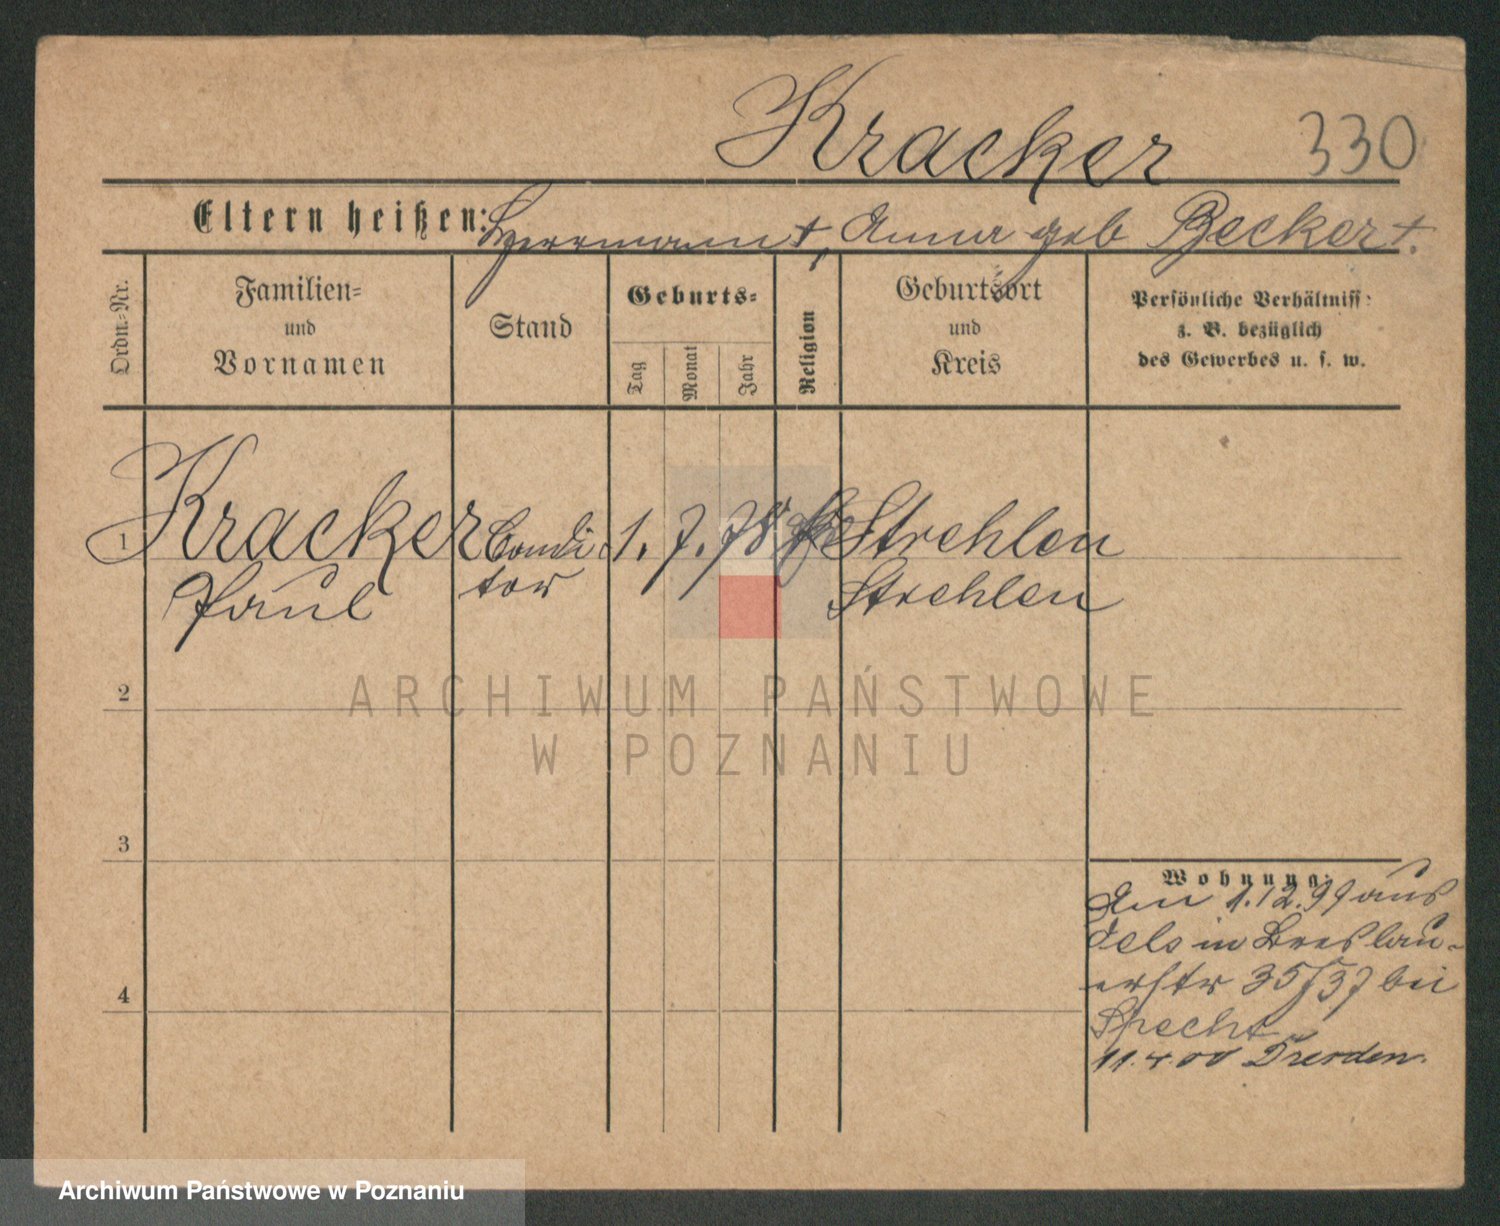 Kracker 330
Eltern heißen: Herrmann †, Anna geb Becker †.
Ordn.-Nr. Familien- und Vornamen Stand Geburts- Tag Monat Jahr Religion Geburtsort und Kreis Persönliche Verhältniss: z. B. bezüglich des Gewerbes u. s. w.
1 Kracker Condi 1. 7. 78 Strehlen
Paul tor Strehlen
2
3
4
Wohnung:
Am 1.12.99 aus
Oels in Breslau-
erstr 35/37 bei
Specht
11.4.00 Dresden.
ARCHIWUM PAŃSTWOWE
W POZNANIU
Archiwum Państwowe w Poznaniu